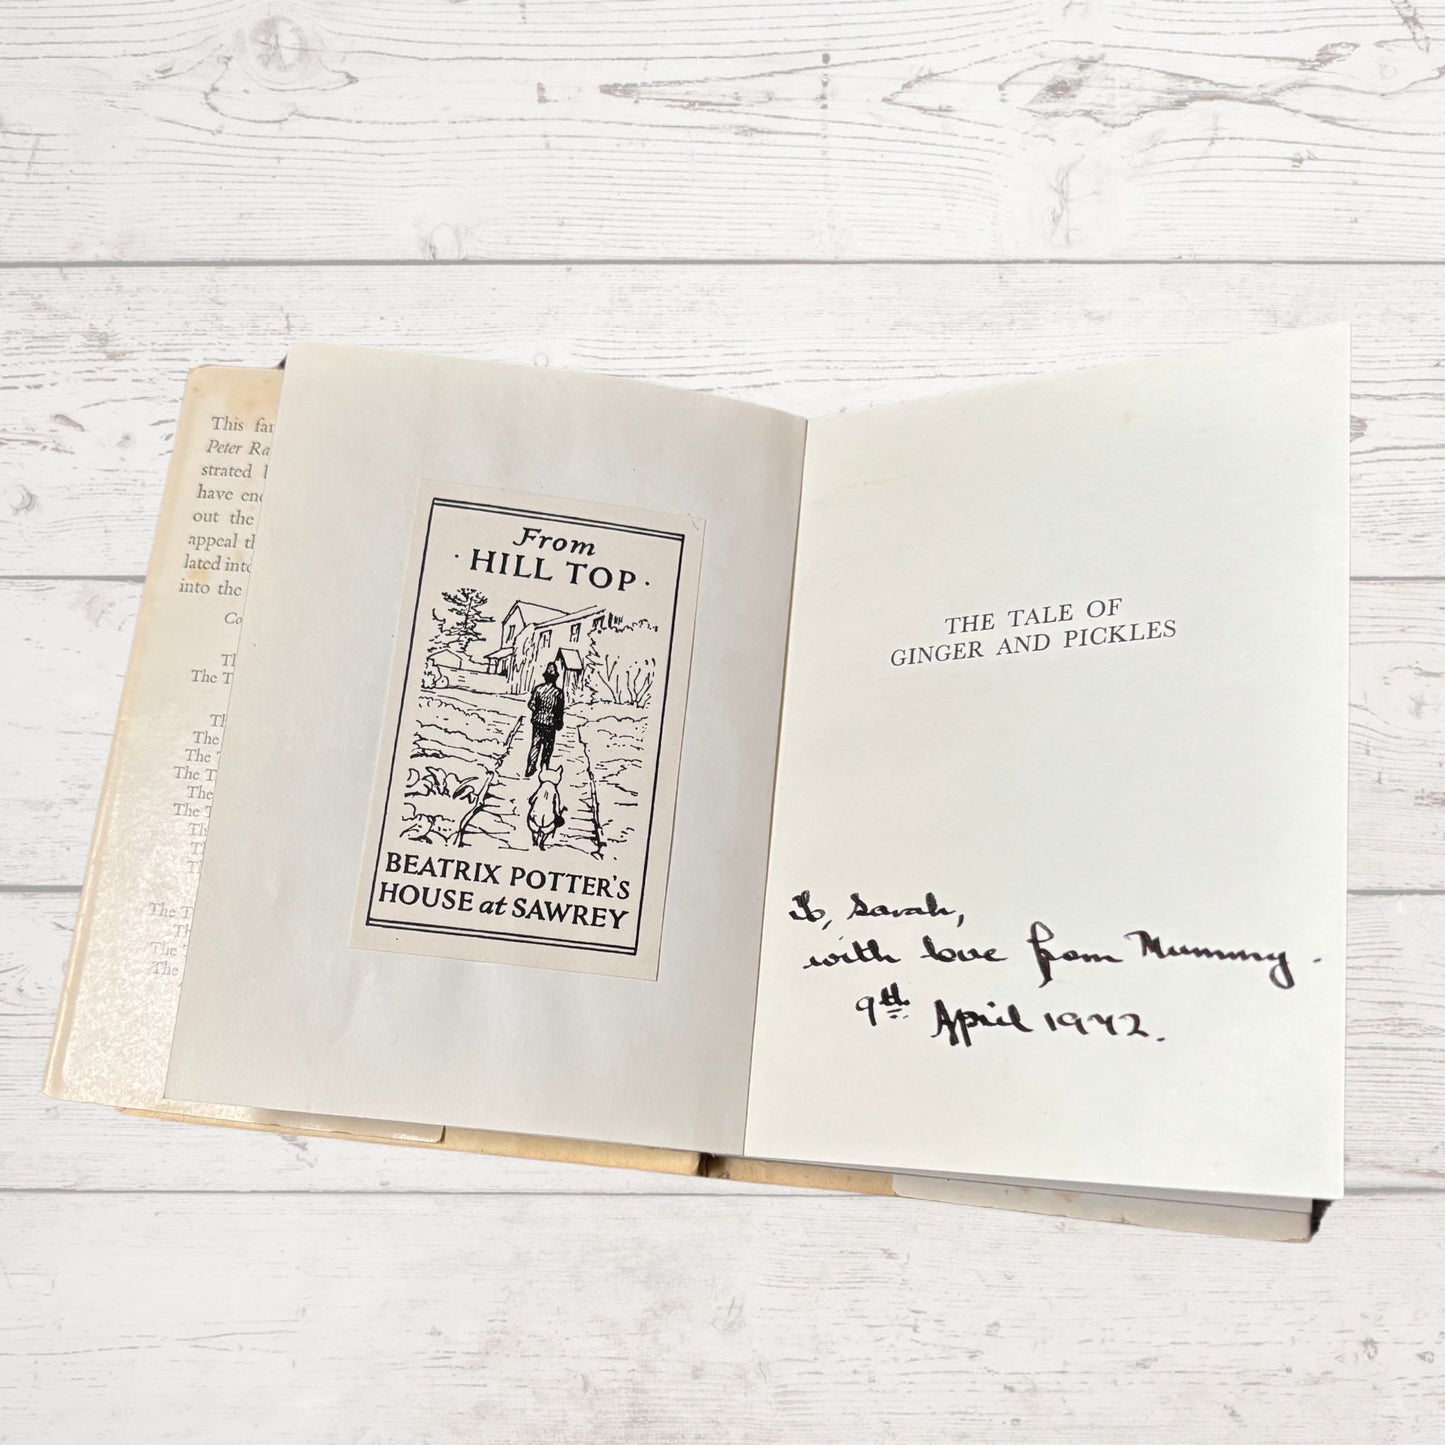 This
Peter
strated
have
out the
appeal
lated
into the
The
The
The
The
The
The
From
· HILL TOP ·
BEATRIX POTTER'S
HOUSE at SAWREY
THE TALE OF
GINGER AND PICKLES
To, Sarah,
with love from Mummy.
9th April 1972.